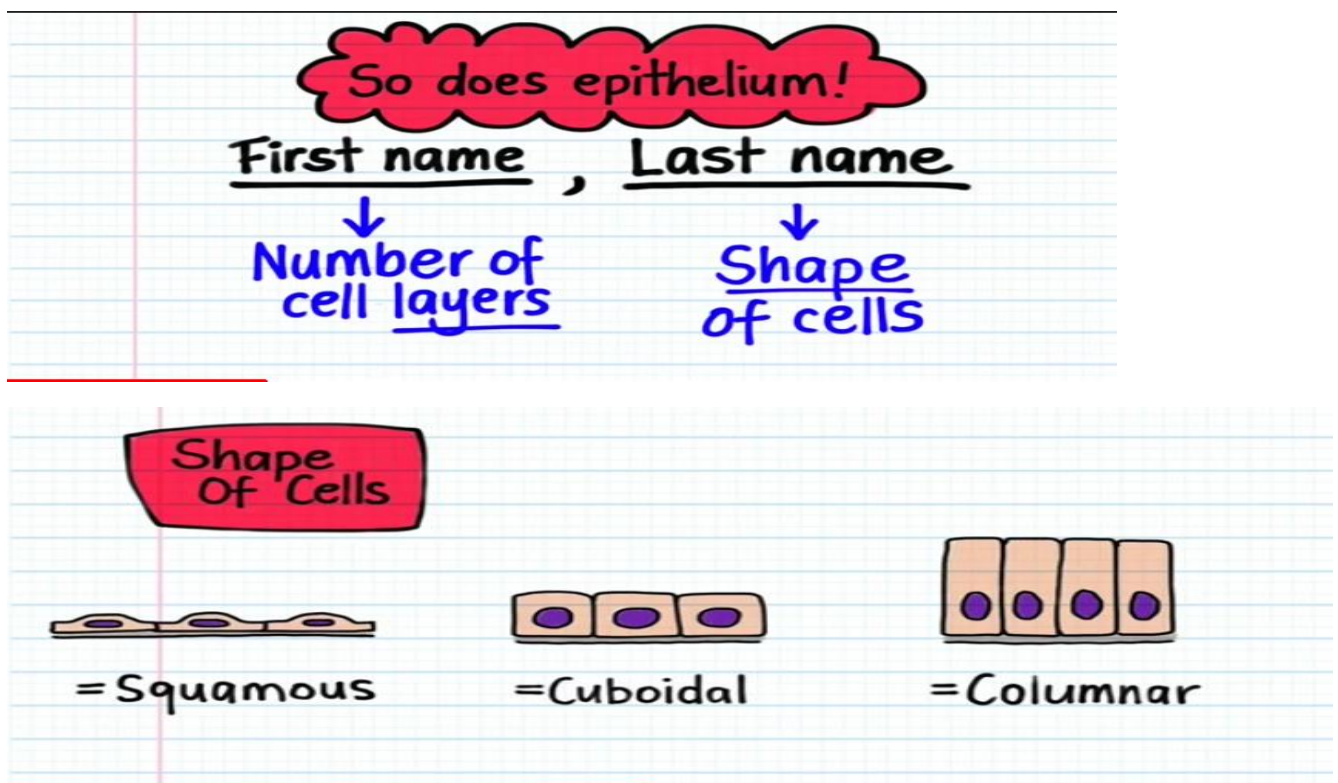 So does epithelium!
First name , Last name
Number of
cell layers
Shape
of cells
Shape
Of Cells
=Squamous
=Cuboidal
=Columnar